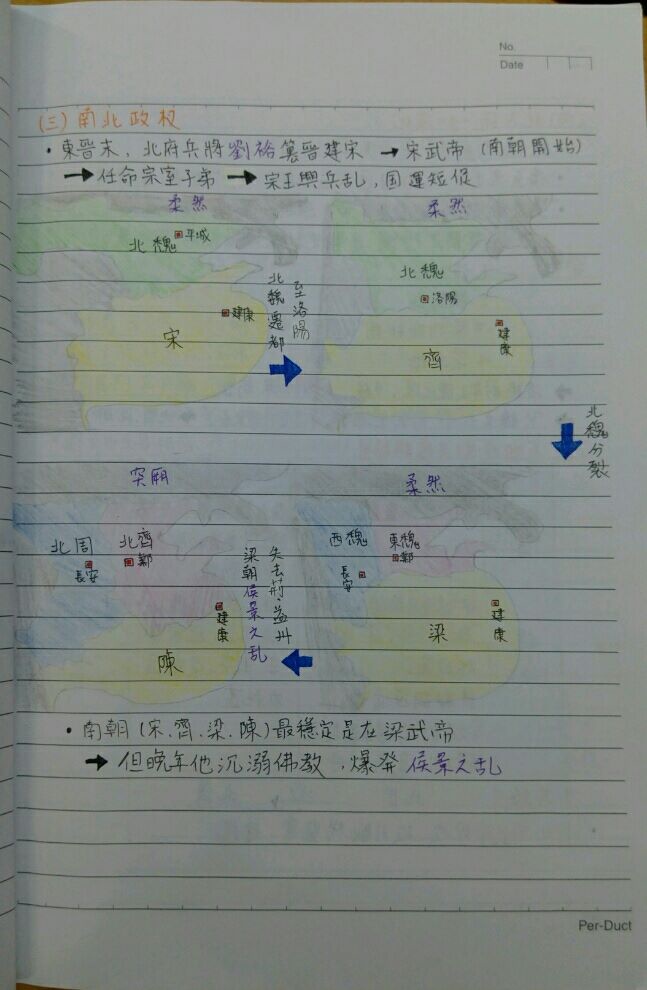 No.
Date
(三)南北政权
•東晉末、北府兵將劉裕篡晉建宋 → 宋武帝 (南朝開始)
→任命宗室子弟 → 宋王興兵乱，国運短促
柔然
北魏 平城
建康
宋
北魏遷都
至洛陽
柔然
北魏
洛陽
建康
齊
北魏分裂
柔然
西魏
東魏
長安
鄴
建康
梁
失去荊、益州
梁朝侯景之乱
突厥
北周
北齊
長安
鄴
建康
陳
•南朝(宋、齊、梁、陳)最穩定是在梁武帝
→ 但晚年他沉溺佛教，爆發侯景之乱
Per-Duct